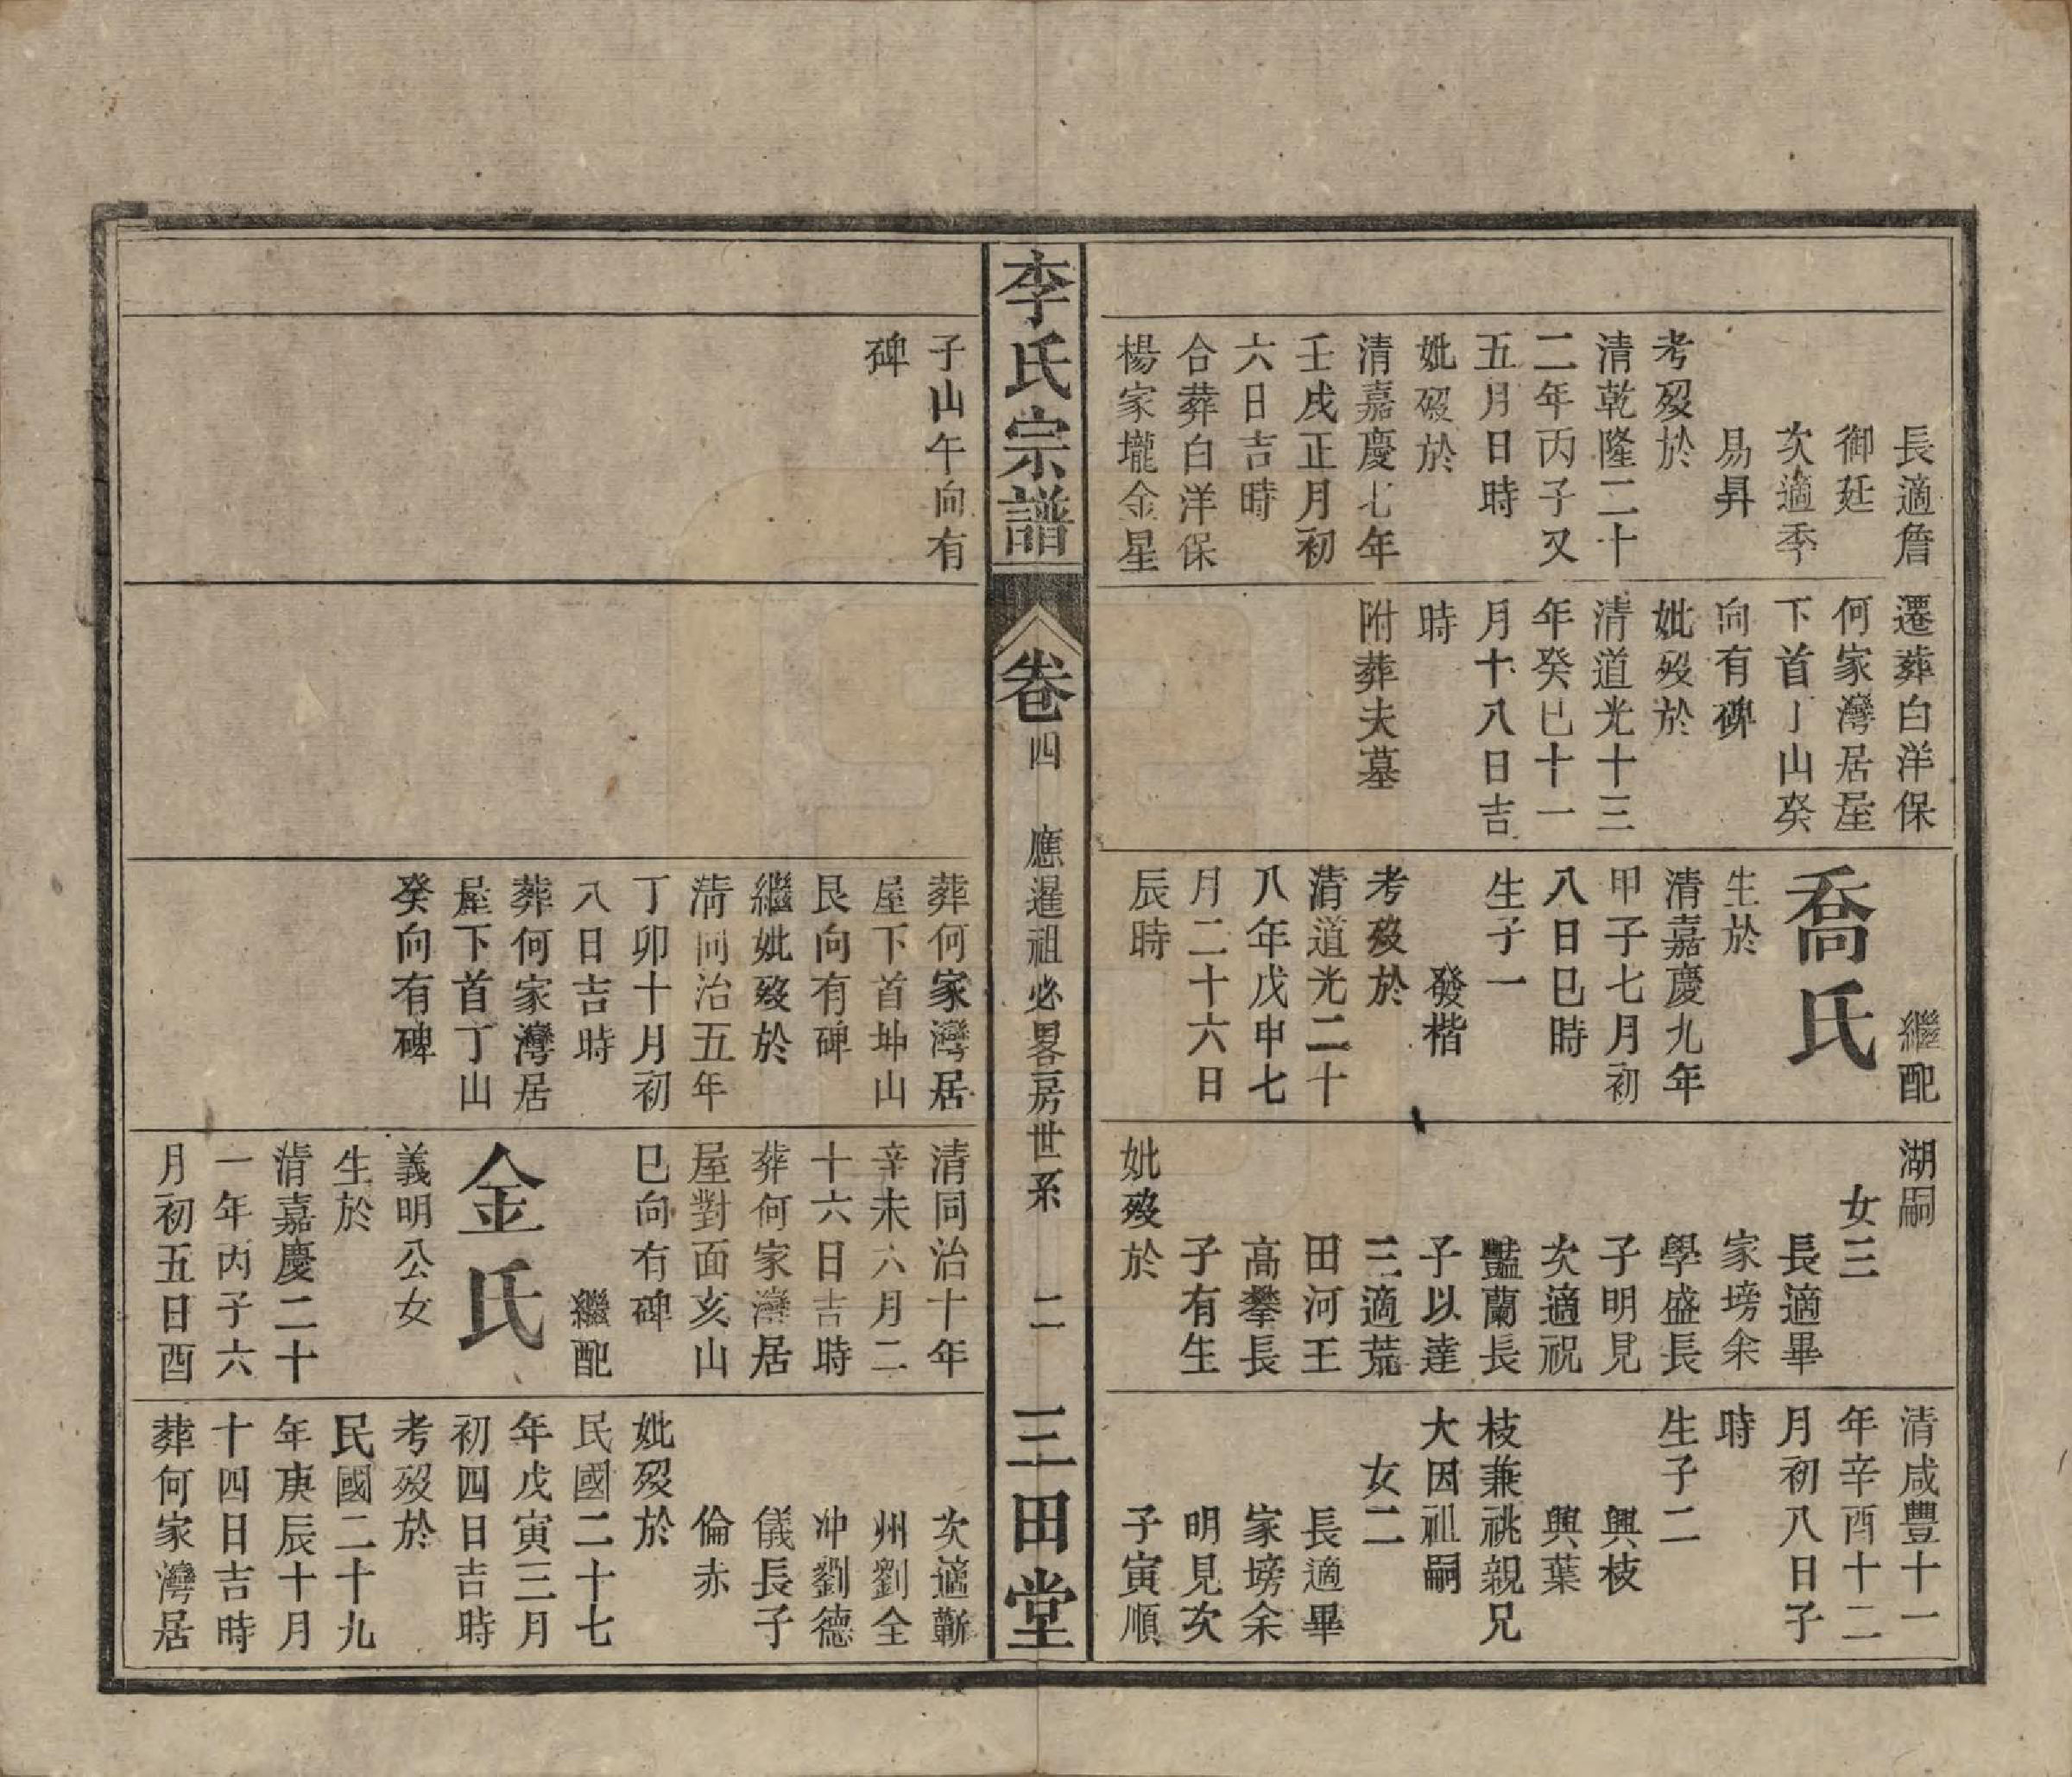 長適詹
御廷
次適季
易昇
考歿於
清乾隆二十
二年丙子又
五月日時
妣歿於
清嘉慶七年
壬戌正月初
六日吉時
合葬白洋保
楊家壠金星
遷葬白洋保
何家灣居屋
下首丁山癸
向有碑
妣歿於
清道光十三
年癸巳十一
月十八日吉
時
附葬夫墓
繼配
喬氏
生於
清嘉慶九年
甲子七月初
八日巳時
生子一
發楷
考歿於
清道光二十
八年戊申七
月二十六日
辰時
湖嗣
女三
長適畢
家塝余
學盛長
子明見
次適祝
豔蘭長
子以達
三適荒
田河王
高攀長
子有生
妣歿於
清咸豐十一
年辛酉十二
月初八日子
時
生子二
興枝
興葉
枝兼祧親兄
大因祖嗣
女二
長適畢
家塝余
明見次
子寅順
李氏宗譜
卷四
應暹祖必畧房世系
二
三田堂
子山午向有
碑
葬何家灣居
屋下首坤山
艮向有碑
繼妣歿於
清同治五年
丁卯十月初
八日吉時
葬何家灣居
屋下首丁山
癸向有碑
清同治十年
辛未六月二
十六日吉時
葬何家灣居
屋對面亥山
巳向有碑
繼配
金氏
義明公女
生於
清嘉慶二十
一年丙子六
月初五日酉
次適蘄
州劉全
冲劉德
儀長子
倫赤
妣歿於
民國二十七
年戊寅三月
初四日吉時
考歿於
民國二十九
年庚辰十月
十四日吉時
葬何家灣居